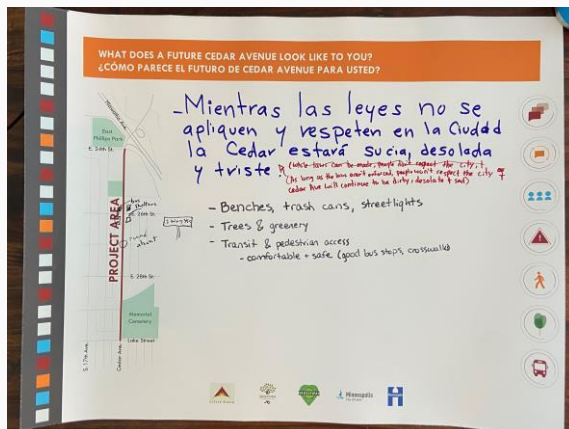 WHAT DOES A FUTURE CEDAR AVENUE LOOK LIKE TO YOU?
¿CÓMO PARECE EL FUTURO DE CEDAR AVENUE PARA USTED?
- Mientras las leyes no se
apliquen y respeten en la Ciudad
la Cedar estará sucia, desolada
y triste
(While laws can be made, people don't respect the city,
(As long as the laws aren't enforced, people won't respect the city
cedar Ave will continue to be dirty, desolate + sad)
- Benches, trash cans, streetlights
- Trees & greenery
- Transit & pedestrian access
- comfortable + safe (good bus stops, crosswalks)
Hiawatha Ave
East
Phillips Park
E. 24th St.
PROJECT AREA
E. 26th St.
E. 28th St.
Memorial
Cemetery
Lake Street
S. 17th Ave.
Cedar Ave.
Minneapolis